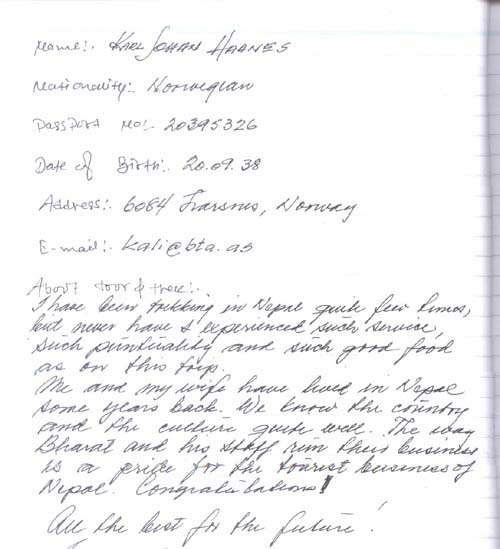 Name:. KARL JOHAN HAANES
Nationality:. Norwegian
PassPort No:. 20395326
Date of Birth:. 20.09.38
Address:. 6084 Norway
E-mail:. kali@bta.as
About tour & trek:.
I have been trekking in Nepal quite few times,
but never have I experienced such service,
such puntuality and such good food
as on this trip.
Me and my wife have lived in Nepal
some years back. We know the country
and the culture quite well. The way
Bharat and his staff run their business
is a pride for the tourest business of
Nepal. Congratulations!
All the best for the future!